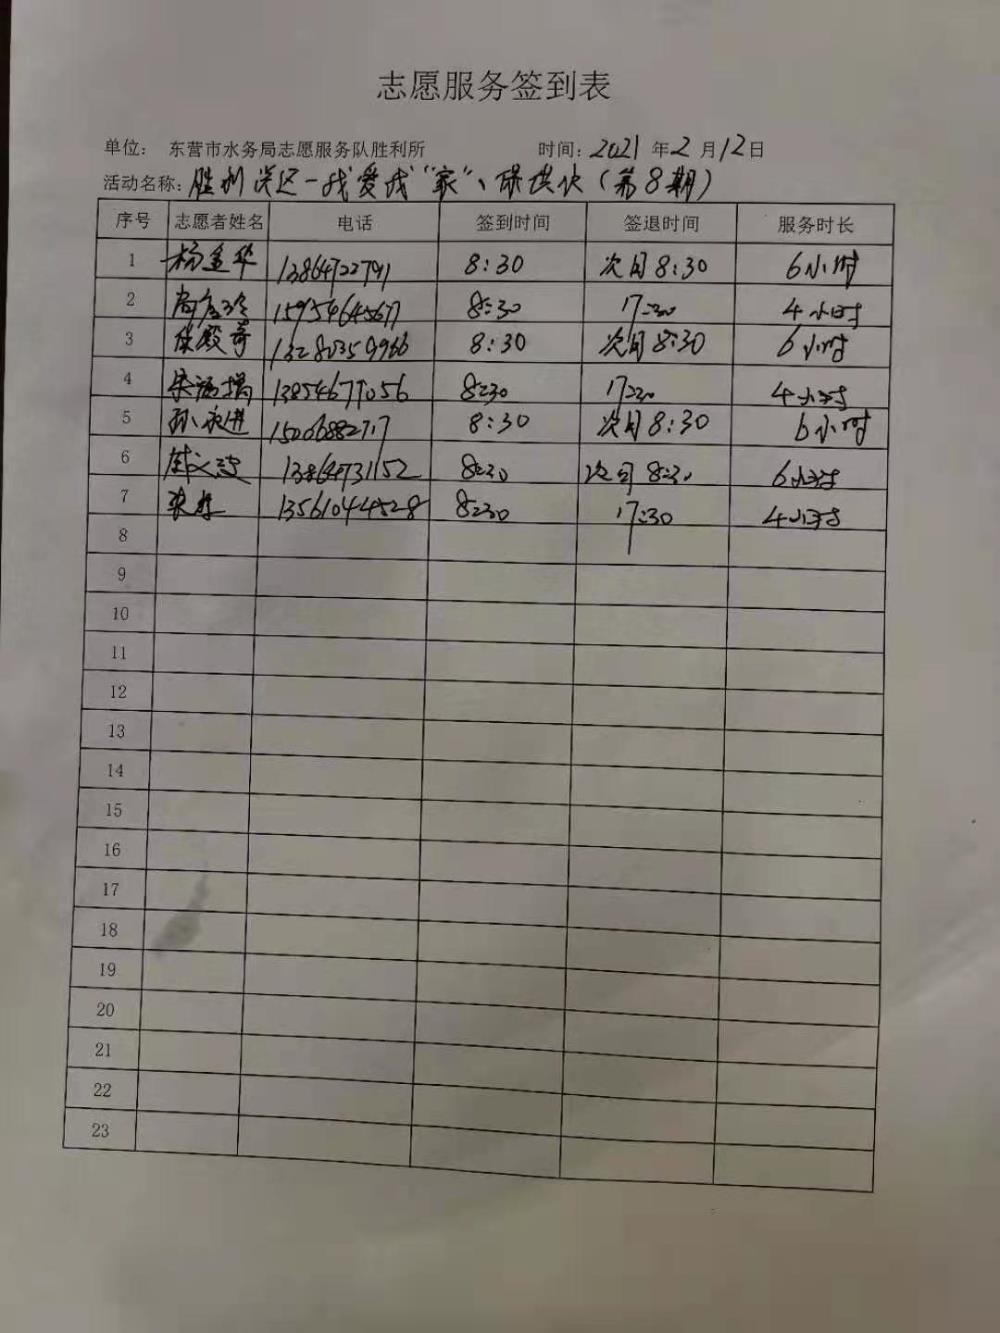 志愿服务签到表
单位： 东营市水务局志愿服务队胜利所 时间：2021年2月12日
活动名称：胜利灌区一我爱我“家”、保供水（第8期）
序号 志愿者姓名 电话 签到时间 签退时间 服务时长
1 杨金华 13864722791 8:30 次日8:30 6小时
2 15954645677 8:30 17:30 4小时
3 13280359966 8:30 次日8:30 6小时
4 13854677056 8:30 17:30 4小时
5 孙永进 15006882717 8:30 次日8:30 6小时
6 13864731152 8:30 次日8:30 6小时
7 13561044528 8:30 17:30 4小时
8
9
10
11
12
13
14
15
16
17
18
19
20
21
22
23